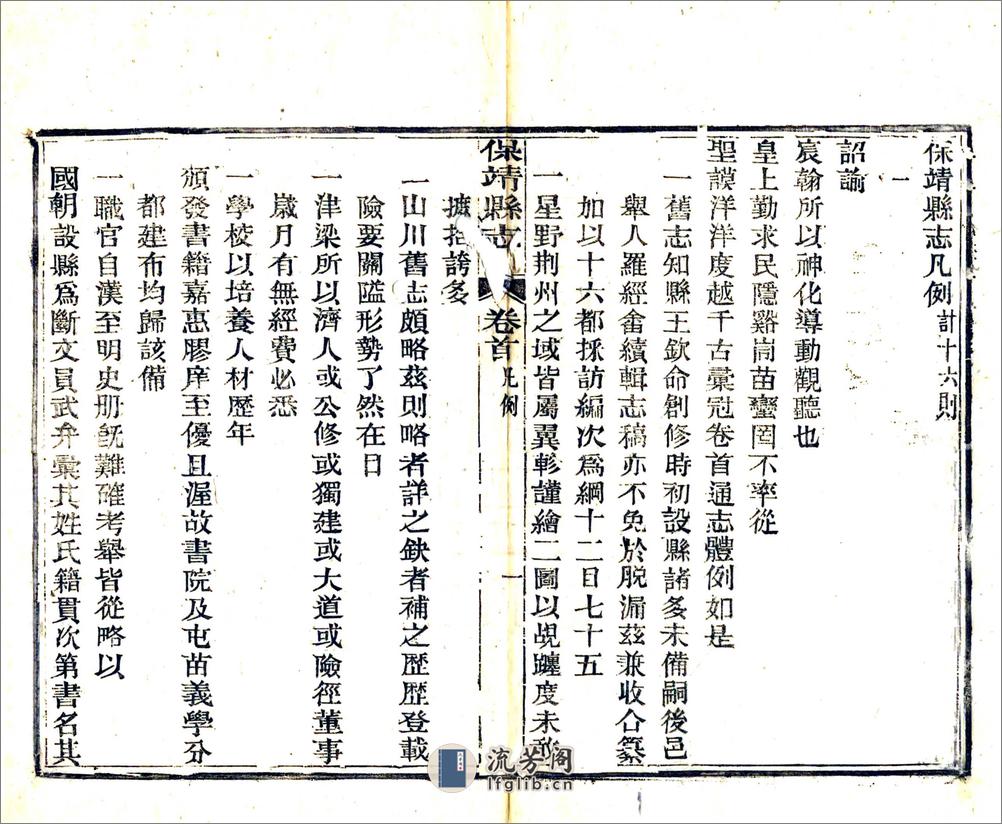 保靖縣志凡例計十六則
一
詔諭
宸翰所以神化導動觀聽也
皇上勤求民隱谿峝苗蠻罔不率從
聖謨洋洋度越千古彙冠卷首通志體例如是
一舊志知縣王欽命創修時初設縣諸多未備嗣後邑
舉人羅經畬續輯志稿亦不免於脫漏茲兼收合纂
如以十六都採訪編次爲綱十二目七十五
一星野荆州之域皆屬翼軫謹繪二圖以覘躔度未敢
保靖縣志 卷首 凡例 一
摭拾誇多
一山川舊志頗略茲則略者詳之缺者補之歷歷登載
險要關隘形勢了然在目
一津梁所以濟人或公修或獨建或大道或險徑董事
嵗月有無經費必悉
一學校以培養人材歷年
頒發書籍嘉惠膠庠至優且渥故書院及屯苗義學分
都建布均歸該備
一職官自漢至明史册旣難確考舉皆從略以
國朝設縣爲斷文員武弁彙其姓氏籍貫次第書名其
流芳阁
lfglib.cn